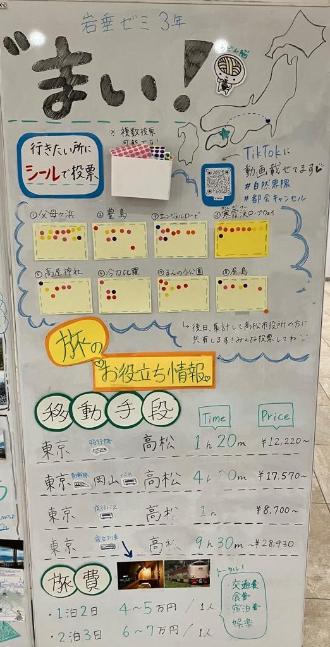 岩垂ゼミ 3年
まい!
うどん脳
行きたい所に
シールで投票
※複数投票
TikTokに
動画載せてます
#自然界隈
#都会キャンセル
①父母ヶ浜
②豊島
③エンジェルロード
④寒霞渓ロープウェイ
⑤高屋神社
後日、集計して高松市役所の方に
共有します!みんな投票してね
旅の
お役立ち情報
移動手段
Time
Price
東京 飛行機 高松 1h 20m ¥12,220~
東京 新幹線 岡山 バス 高松 ¥17,570~
東京 夜行バス ¥8,700~
東京 寝台列車 9h 30m ~¥28,930
旅費
・1泊2日 4~5万円 /1人
・2泊3日 6~7万円 /1人
トータル!
・交通費
・食費
・宿泊費
・娯楽